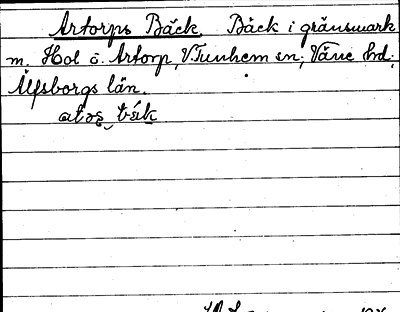 Artorps Bäck. Bäck i gränsmark
m. Hol o. Artorp, V.Tunhem sn; Väne hd;
Älfsborgs län.